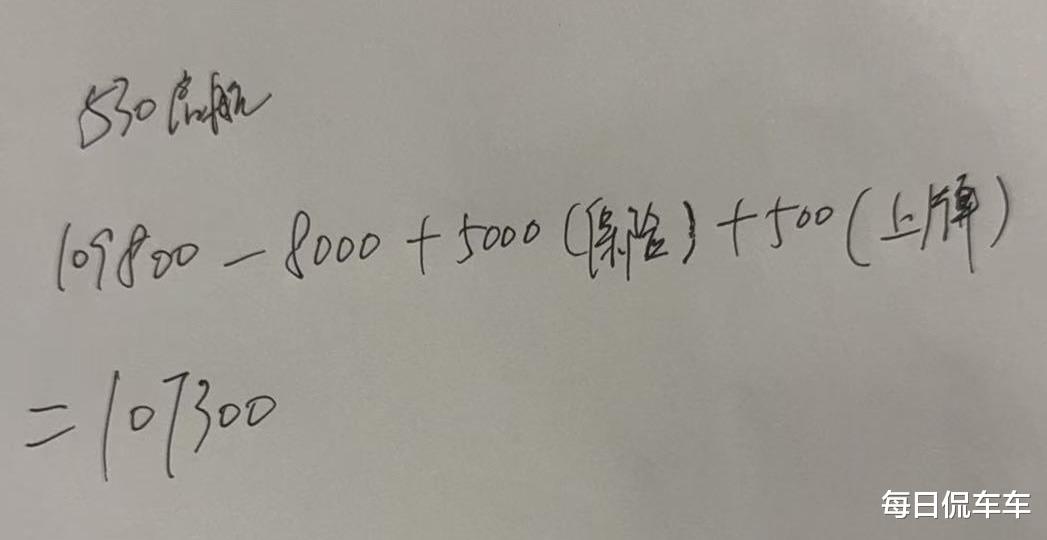 530启航
109800-8000+5000(保险)+500(上牌)
=107300
每日侃车车